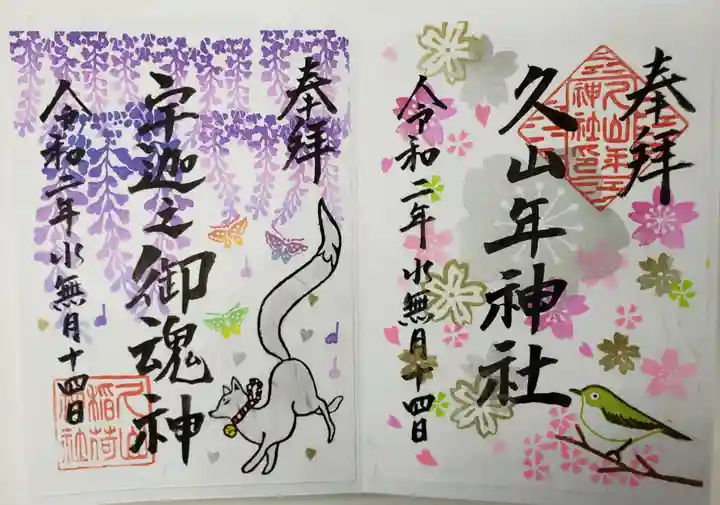 奉拝
久山年神社
令和二年水無月十四日
久山年
神社印
奉拝
宇迦之御魂神
令和二年水無月十四日
久山
稲荷
神社